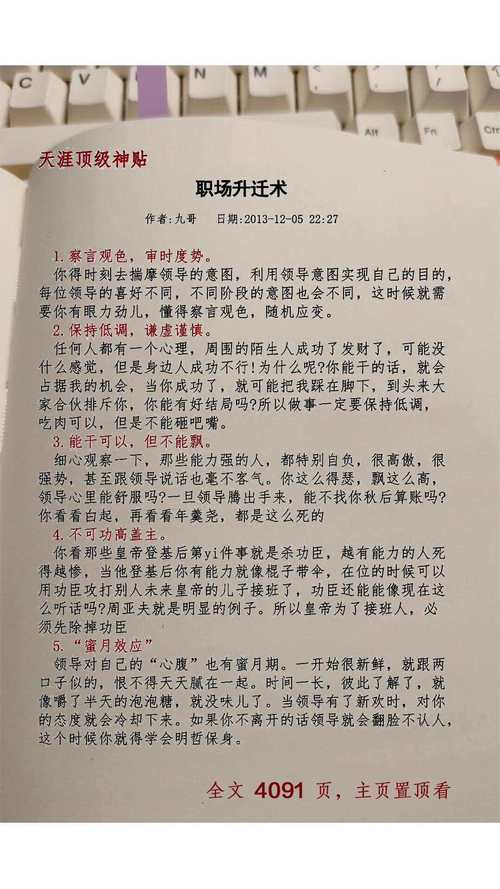 C
V
N
M
Alt
Fn
Ctr
天涯顶级神贴
职场升迁术
作者:九哥 日期:2013-12-05 22:27
1.察言观色，审时度势。
你得时刻去揣摩领导的意图，利用领导意图实现自己的目的，
每位领导的喜好不同，不同阶段的意图也会不同，这时候就需
要你有眼力劲儿，懂得察言观色，随机应变。
2.保持低调，谦虚谨慎。
任何人都有一个心理，周围的陌生人成功了发财了，可能没
什么感觉，但是身边人成功不行!为什么呢?你能干的话，就会
占据我的机会，当你成功了，就可能把我踩在脚下，到头来大
家合伙排斥你，你能有好结局吗?所以做事一定要保持低调，
吃肉可以，但是不能砸吧嘴。
3.能干可以，但不能飘。
细心观察一下，那些能力强的人，都特别自负，很高傲，很
强势，甚至跟领导说话也毫不客气。你这么得瑟，飘这么高，
领导心里能舒服吗?一旦领导腾出手来，能不找你秋后算账吗?
你看看白起，再看看年羹尧，都是这么死的
4.不可功高盖主。
你看那些皇帝登基后第yi件事就是杀功臣，越有能力的人死
得越惨，当他登基后你有能力就像棍子带伞，在位的时候可以
用功臣攻打别人未来皇帝的儿子接班了，功臣还能能像现在这
么听话吗?周亚夫就是明显的例子。所以皇帝为了接班人，必
须先除掉功臣
5.“蜜月效应”
领导对自己的“心腹”也有蜜月期。一开始很新鲜，就跟两
口子似的，恨不得天天腻在一起。时间一长，彼此了解了，就
像嚼了半天的泡泡糖，就没味儿了。当领导有了新欢时，对你
的态度就会冷却下来。如果你不离开的话领导就会翻脸不认人，
这个时候你就得学会明哲保身。
全文 4091 页，主页置顶看